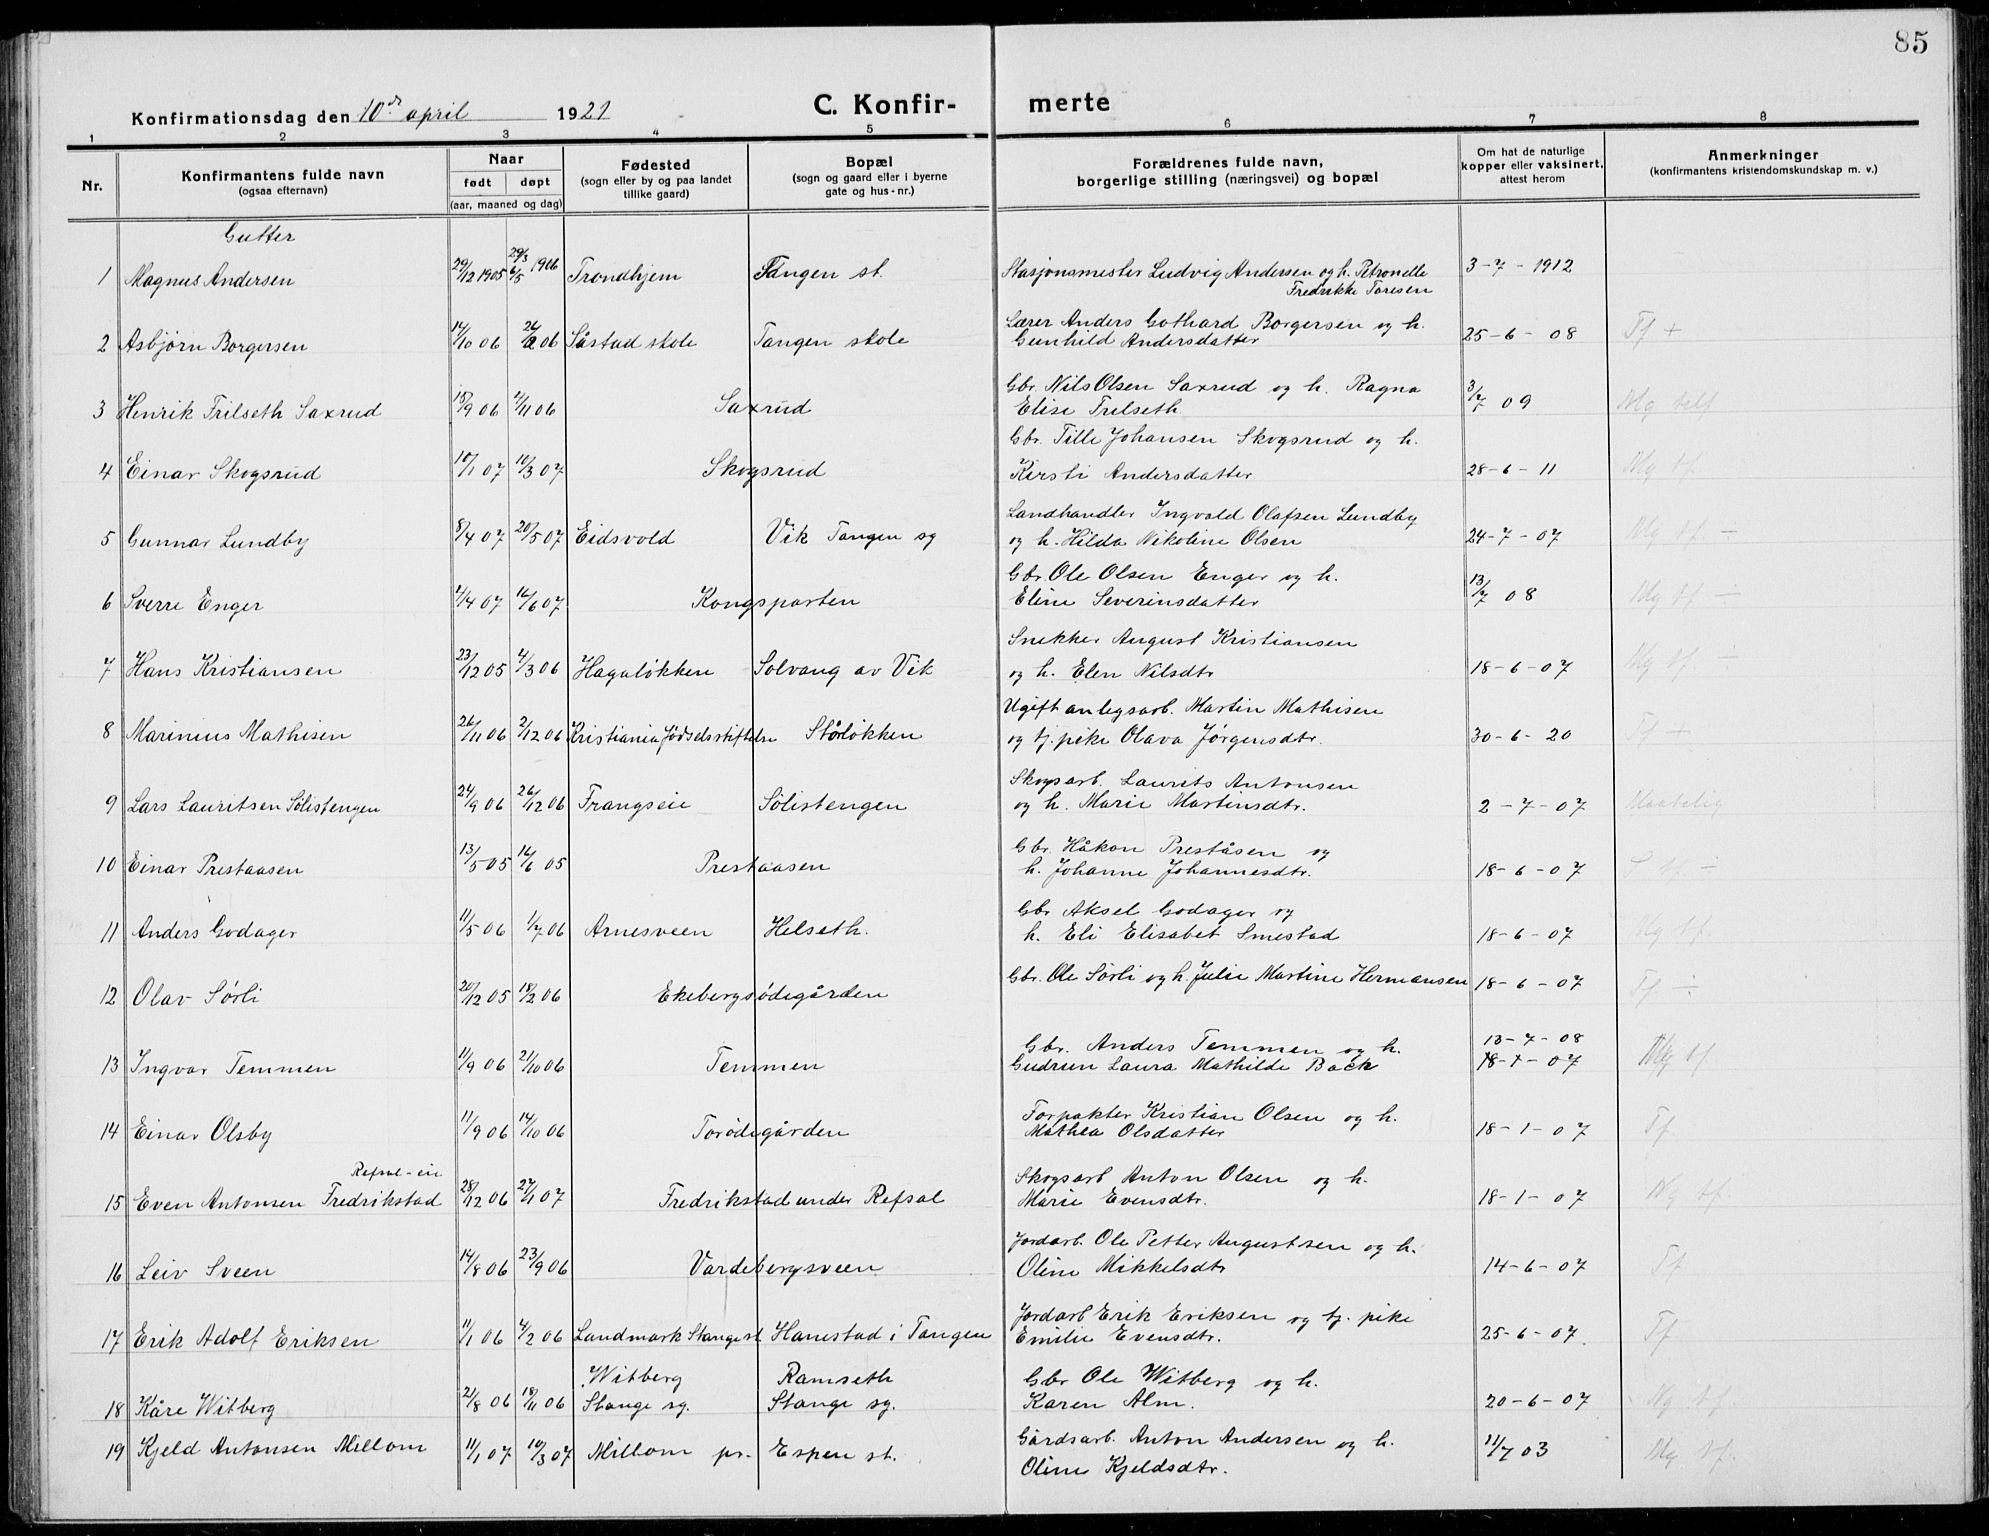 85
Konfirmationsdag den 10de april 1921
C. Konfir- merte
1 2 3 4 5 6 7 8
Nr.
Konfirmantens fulde navn
(ogsaa efternavn)
Naar
født døpt
(aar, maaned og dag)
Fødested
(sogn eller by og paa landet
tillike gaard)
Bopæl
(sogn og gaard eller i byerne
gate og hus-nr.)
Forældrenes fulde navn,
borgerlige stilling (næringsvei) og bopæl
Om hat de naturlige
kopper eller vaksinert,
attest herom
Anmerkninger
(konfirmantens kristendomskundskap m. v.)
Gutter
1 Magnus Andersen 29/12 1905 29/3 6/5 1906 Trondhjem Tangen st. Stasjonsmester Ludvig Andersen og h. Petronelle 3-7-1912
Fredrikke Toresen
2 Asbjørn Borgersen 14/10 06 06 Såstad skole Tangen skole Lærer Anders Gothard Borgersen og h. 25-6-08 Tf +
Gunhild Andersdatter
3 Henrik Trilseth Saxrud 15/9 06 4/11 06 Saxrud Gbr. Nils Olsen Saxrud og h. Ragna 3/7 09 Mg tf
Elise Trelseth
4 Einar Skogsrud 10/1 07 10/3 07 Skogsrud Gbr. Tille Johansen Skogsrud og h. 28-6-11 Mg tf
Kirsti Andersdatter
5 Gunnar Lundby 8/4 07 20/5 07 Eidsvold Vik Tangen sg Landhandler Ingvald Olafsen Lundby 24-7-07 Mg tf -
og h. Hilda Nikoline Olsen
6 Sverre Enger 4/4 07 16/6 07 Kongsparten Gbr. Ole Olsen Enger og h. 13/7 08 Mg tf -
Eline Severinsdatter
7 Hans Kristiansen 23/12 05 4/3 06 Hagaløkken Solvang av Vik Snekker August Kristiansen 18-6-07 Mg tf ÷
og h. Elen Nilsdtr
8 Marinius Mathisen 26/11 06 2/12 06 Kristiania fødselsstiftelse Stórløkken Ugift anlegsarb. Martin Mathisen 30-6-20 Tf +
og tj. pike Olava Jørgensdtr.
9 Lars Lauritsen Sølistengen 24/9 06 26/12 06 Frangseie Sølistengen Skogsarb. Laurits Antonsen 2-7-07 Maatelig
og h. Marie Martinsdtr.
10 Einar Prestaasen 13/5 05 16/6 05 Prestaasen Gbr. Håkon Preståsen og 18-6-07
h. Johanne Johannesdtr.
11 Anders Godager 11/5 06 1/7 06 Arnesveen Helseth. Gbr Aksel Godager og 18-6-07 Ng tf.
h. Eli Elisabet Smestad
12 Olav Sørli 20/12 05 18/2 06 Ekebergsødegården Gbr. Ole Sørli og h. Julie Martine Hermansen 18-6-07 Tf. ÷
13 Ingvar Temmen 11/9 06 21/10 06 Temmen Gbr. Anders Temmen og h. 13-7-08
Gudrun Laura Mathilde Back 18-1-07 Mg tf
14 Einar Olsby 11/9 06 14/10 06 Torødegården Forpakter Kristian Olsen og h. 18-1-07 Tf
Mathea Olsdatter
Refsal-eie
15 Even Antonsen Fredrikstad 28/12 06 27/1 07 Fredrikstad under Refsal Skogsarb Anton Olsen og h. 18-1-07 Ng tf
Marie Evensdtr.
16 Leiv Sveen 14/8 06 23/9 06 Vardebergsveen Jordarb. Ole Petter Augustsen og h. 14-6-07 Tf
Oline Mikkelsdtr
17 Erik Adolf Eriksen 11/1 06 4/2 06 Landmark Stange st Hanestad i Tangen Jordarb Erik Eriksen og tj. pike 25-6-07. Tf
Emilie Evensdtr.
18 Kåre Witberg 21/8 06 18/11 06 Witberg Stange sg. Ramseth Stange sg. Gbr Ole Witberg og h. 20-6-07 Ng tf
Karen Alm.
19 Kjeld Antonsen Millom 11/1 07 10/3 07 Millom pr. Espen st. Gårdsarb. Anton Andersen og h. 11/7 03 Mg tf.
Oline Kjeldsdtr.